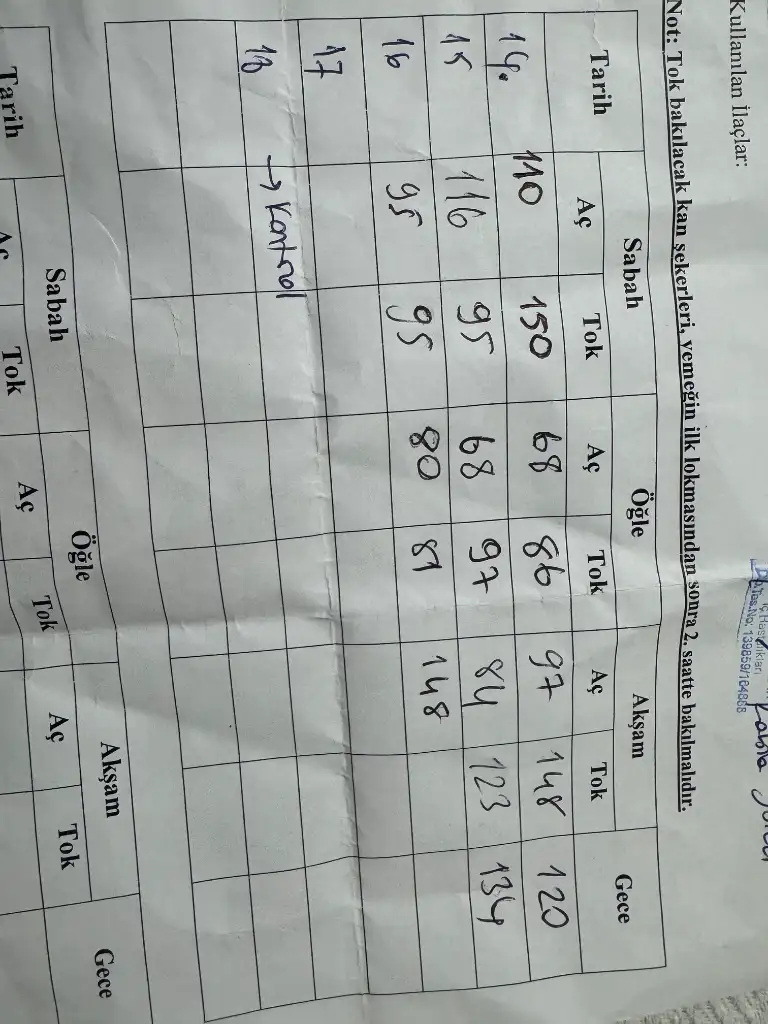 Kullanılan İlaçlar:
Not: Tok bakılacak kan şekerleri, yemeğin ilk lokmasından sonra 2. saatte bakılmalıdır.
İç Hastalıkları
Tes.No: 139859/164868
Tarih Sabah Öğle Akşam Gece
Aç Tok Aç Tok Aç Tok
14. 110 150 68 86 97 148 120
15 116 95 68 97 84 123 134
16 95 95 80 81 148
17
18 → Kontrol
Tarih Sabah Öğle Akşam Gece
Aç Tok Aç Tok Aç Tok